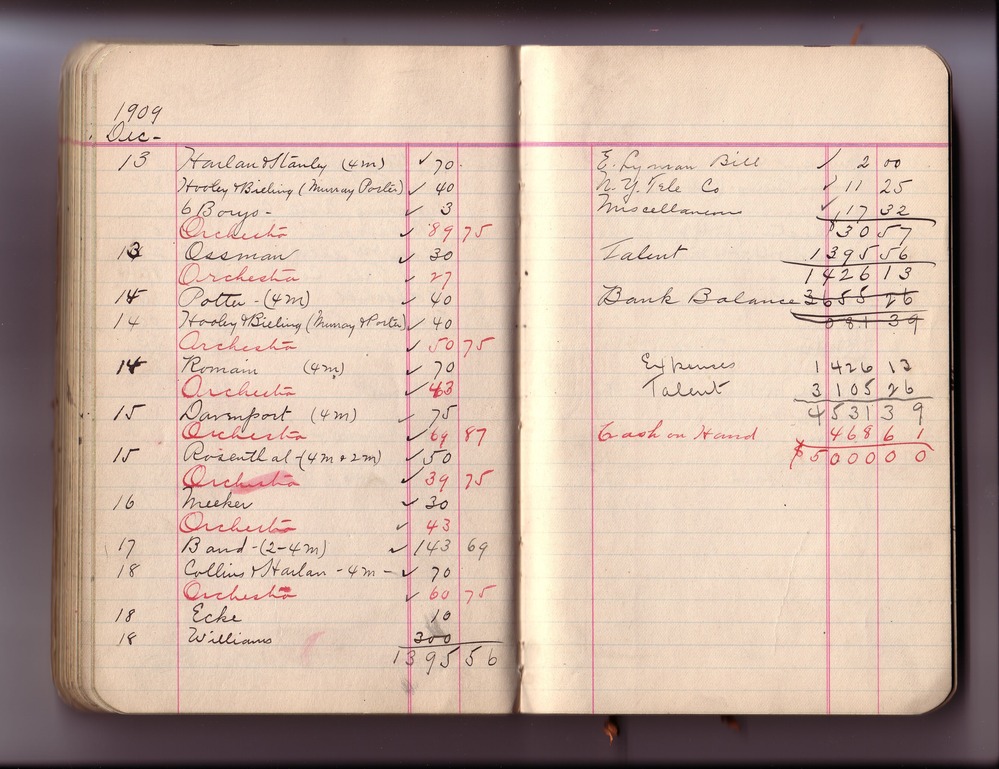 1909
Dec-
13 Harlan & Stanley (4m) ✓ 70.
Hooley & Bieling (Murray Porter) ✓ 40
6 Boxes - ✓ 3
Orchestra ✓ 89 75
13 Ossman ✓ 30
Orchestra ✓ 27
14 Potter - (4m) ✓ 40
14 Hooley & Bieling (Murray & Porter) ✓ 40
Orchestra ✓ 50 75
14 Romain (4m) ✓ 70
Orchestra ✓ 43
15 Davenport (4m) ✓ 75
Orchestra ✓ 69 87
15 Rosenthal - (4m & 2m) ✓ 50
Orchestra ✓ 39 75
16 Meeker ✓ 30
Orchestra ✓ 43
17 Band - (2-4m) ✓ 143 69
18 Collins & Harlan - 4m - ✓ 70
Orchestra ✓ 60 75
18 Ecke 10
18 Williams 300
1395 56
E. Lyman Bill ✓ 2 00
N.Y. Tele Co ✓ 11 25
Miscellaneous ✓ 17 32
$30 57
Talent 1395 56
1426 13
Bank Balance 3655 26
081 39
Expenses 1426 13
Talent 3105 26
4531 39
Cash on Hand 468 61
$5000 00